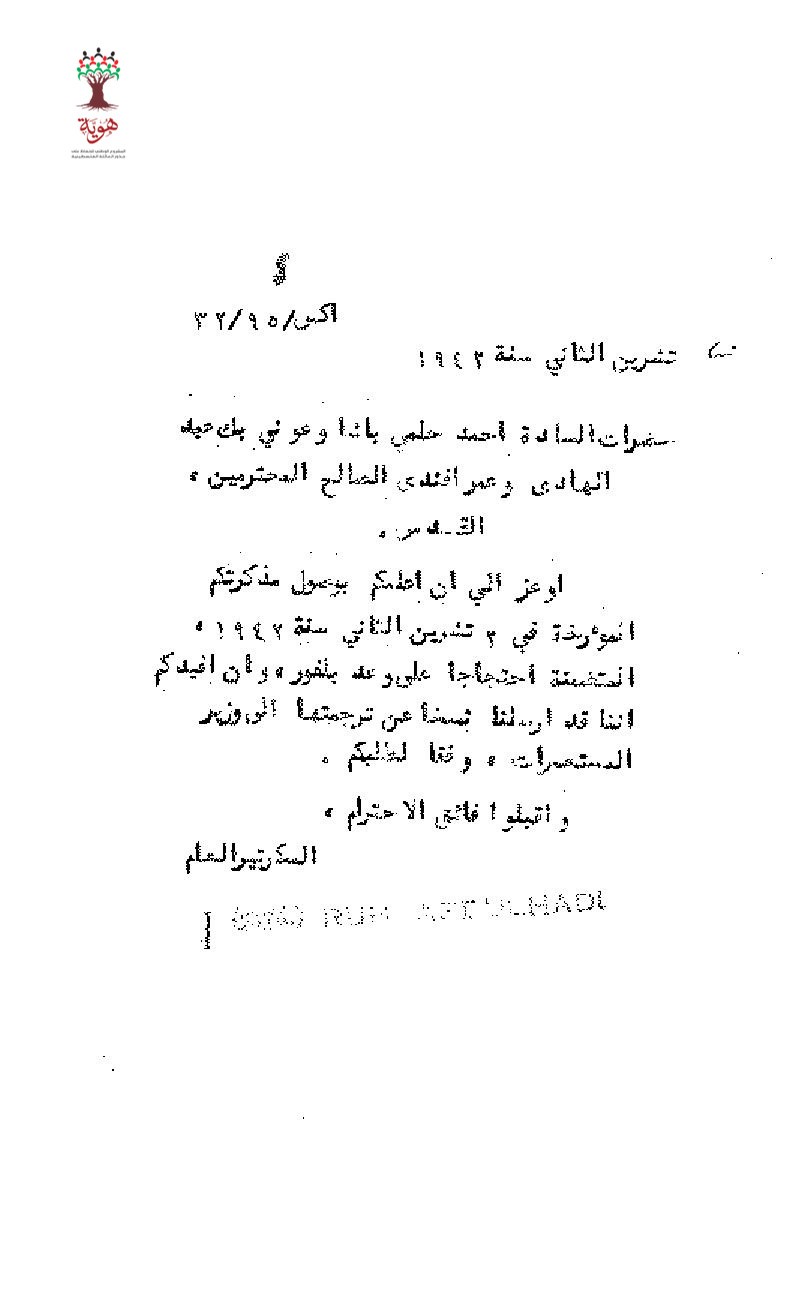 هوية
المشروع الوطني للحفاظ على
جذور العائلة الفلسطينية
اكس/٣٢/٩٥
تشرين الثاني سنة ١٩٤٢
حضرات السادة احمد حلمي باشا وعوني بك عبد
الهادى وعمر افندى الصالح المحترمين ،
القدس .
اوعز الي ان اعلمكم بوصول مذكرتكم
المؤرخة في ٢ تشرين الثاني سنة ١٩٤٢ ،
المتضمنة احتجاجا على وعد بلفور ، وان افيدكم
اننا قد ارسلنا نسخا عن ترجمتها الى وزير
المستعمرات ، وفقا لطلبكم .
واقبلوا فائق الاحترام ،
السكرتير العام